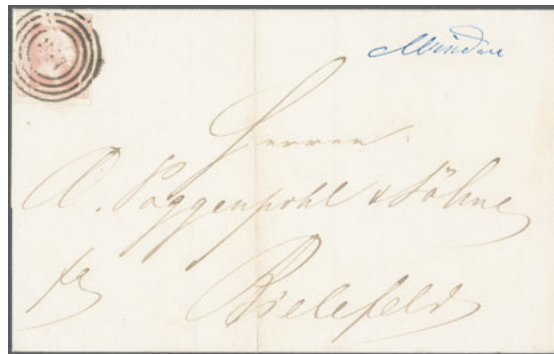 Minden
Herren
A. Poggenpohl & Söhne
Bielefeld